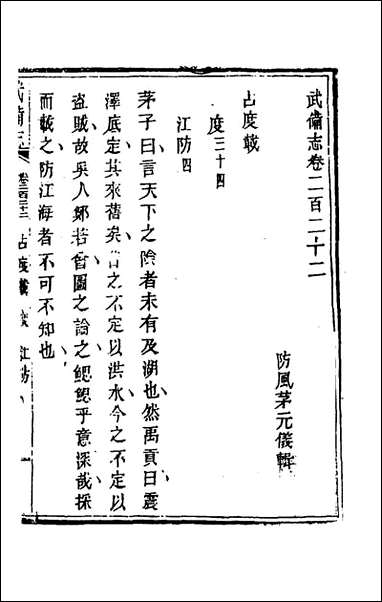 武備志卷二百二十二
防風茅元儀輯
占度載
度三十四
江防四
茅子曰言天下之險者未有及湖也然禹貢曰震
澤底定其來舊矣昔之不定以洪水今之不定以
盜賊故吳人鄭若曾圖之論之鰓鰓乎意深哉採
而載之防江海者不可不知也
武備志 卷二百二十二 占度載 度 江防 一